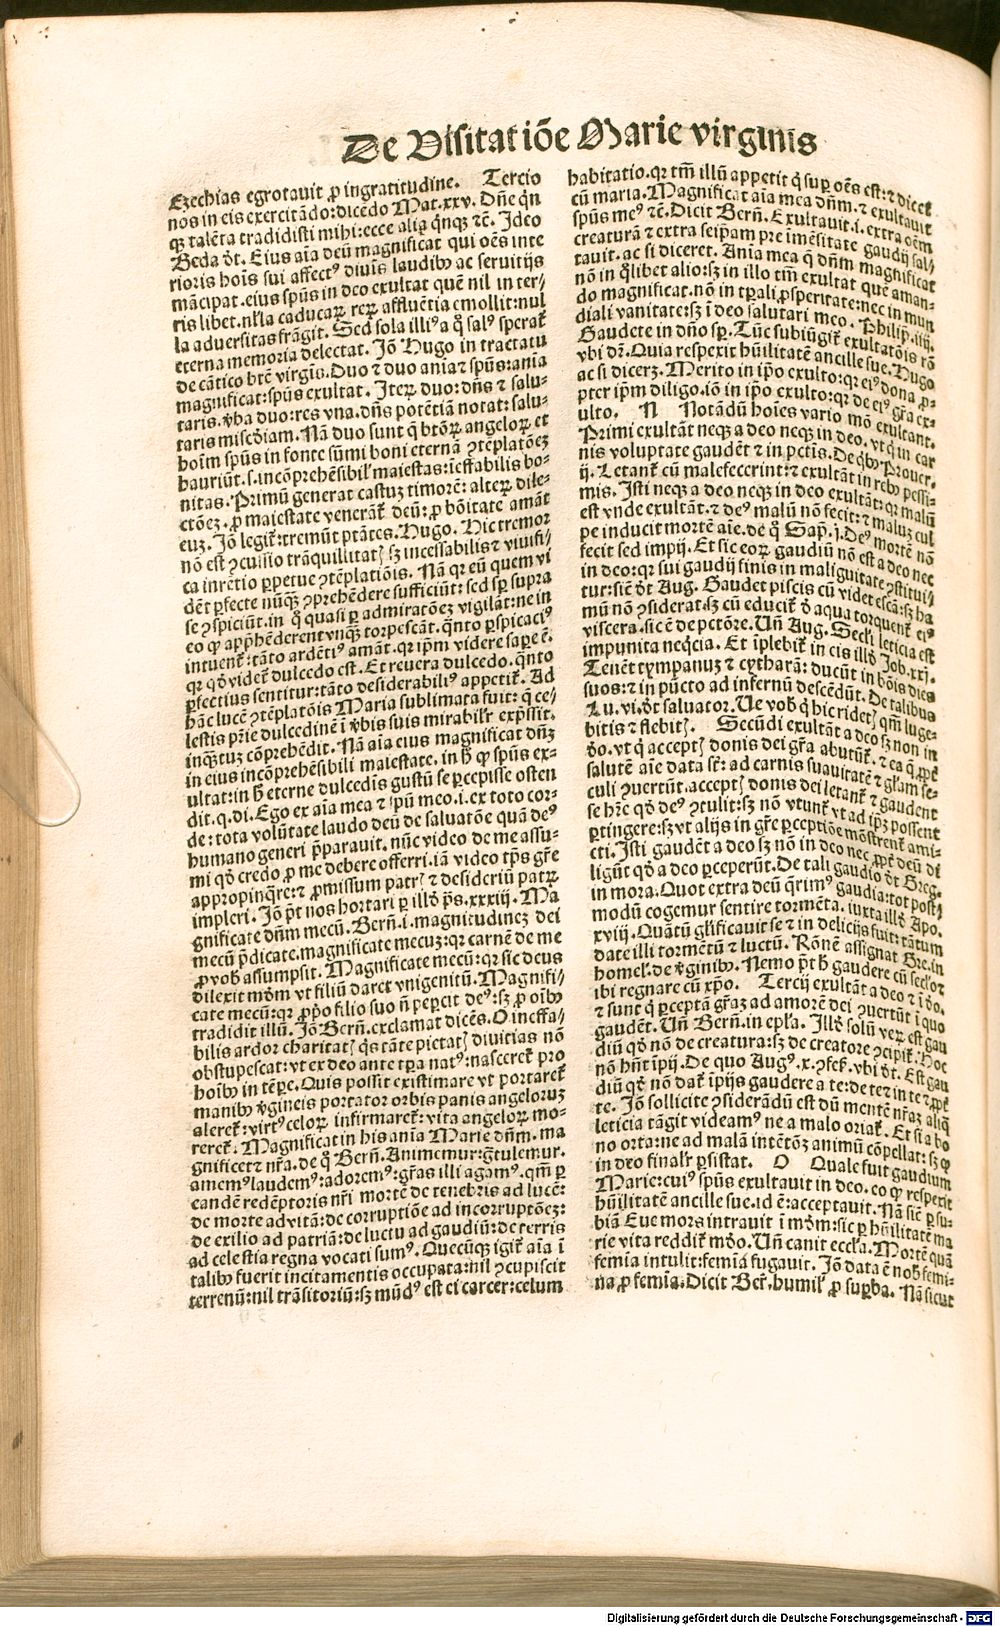 De Visitatiōe Marie virginis
Ezechias egrotauit ꝓ ingratitudine. Tercio
nos in eis exercitādo: dicēdo Mat. xxv. Dn̄e qͥn
qꝫ talēta tradidisti mihi: ecce alia qͥnqꝫ ⁊c̄. Ideo
Beda d̄t. Eius aīa deū magnificat qui oēs inte
rioris hoīs sui affectꝰ diuīs laudibꝰ ac seruitijs
mācipat. eius spūs in deo exultat quē nil in ter⸗
ris libet. nl̄la caducaꝝ reꝝ affluētia emollit: nul
la aduersitas frāgit. Sed sola illiꝰ a qͦ salꝰ speraꝉ
eterna memoria delectat. Iō Hugo in tractatu
de cātico btē̄ virgīs. Duo ⁊ duo anīa ⁊ spūs: anīa
magnificat: spūs exultat. Iteꝝ duo: dn̄s ⁊ salu⸗
taris. v̄ba duo: res vna. dn̄s potētiā notat: salu⸗
taris misc̄diam. Nā duo sunt q̄ btōꝝ angeloꝝ et
hoīm spūs in fonte sūmi boni eternā ꝯtēplatōeꝫ
hauriūt. s. incōprehēsibil̓ maiestas: ieffabilis bo⸗
nitas. Primū generat castuꝫ timorē: alteꝝ dile⸗
ctōeꝫ. ꝓ maiestate venerāꝉ deū: ꝓ bōitate amāt
euꝫ. Iō legiꝉ: tremūt ptātes. Hugo. Hic tremor
nō est ꝯcussio trāquillitatꝭ sꝫ incessabilis ⁊ viuifi⸗
ca intētio ꝑpetue ꝯtēplatiōis. Nā qꝛ eū quem vi
dēt ꝑfecte nūqꝫ ꝯprehēdere sufficiūt: sed sꝑ supra
se ꝯspiciūt. in qͦ quasi ꝑ admiratōeꝫ vigilāt: ne in
eo qꝫ apprēhēderent vnqꝫ torpescāt. qͣnto ꝑspicaciꝰ
intuenꝉ: tāto ardētiꝰ amāt. qꝛ ip̄m videre sapere ē.
qꝛ qd̄ videꝉ dulcedo est. Et reuera dulcedo. qͣnto
ꝑfectius sentitur: tāto desiderabiliꝰ appetiꝉ. Ad
hāc lucē ꝯtēplatōis Maria sublimata fuit: q̄ ce⸗
lestis pr̄ie dulcedinē ī v̄bis suis mirabilr̄ exp̄ssit.
inqͣꝫtuꝫ cōprehēdit. Nā aīa eius magnificat dn̄ꝫ
in eius incōprehēsibili maiestate. in h̄ qꝫ spūs ex⸗
ultat: in h̄ eterne dulcedīs gustū se ꝑcepisse osten
dit. q. di. Ego ex aīa mea ⁊ spū meo. i. ex toto cor⸗
de: tota volūtate laudo deū de saluatōe quā deꝰ
humano generi p̄parauit. nūc video de me assu⸗
mi qd̄ credo ꝓ me debere offerri. iā video tp̄s gr̄e
appropinq̄re: ⁊ ꝓmissum patrꝭ ⁊ desideriū patꝝ
impleri. Iō p̄t nos hortari ꝑ illd̄ ps̄. xxxiij. Ma
gnificate dn̄m mecū. Bern̄. i. magnitudineꝫ dei
mecū p̄dicate. magnificate mecuꝫ: qꝛ carnē de me
ꝓ vob̄ assumpsit. Magnificate mecū: qꝛ sic deus
dilexit mdm̄ vt filiū daret vnigenitū. Magnifi⸗
cate mecū: qꝛ ꝓp̄o filio suo n̄ peꝑcit deꝰ: sꝫ ꝓ oībꝰ
tradidit illū. Iō Bern̄. exclamat dicēs. O ineffa⸗
bilis ardor charitatꝭ q̄s tāte pietatꝭ diuitias nō
obstupescat: vt ex deo ante tp̄ra natꝰ: nasceretꝉ pro
hoībꝰ in tēꝑe. Quis possit existimare vt portaretꝉ
manibꝰ v̄gineis portator orbis panis angeloruꝫ
aleretꝉ: virtꝰ celoꝝ infirmaretꝉ: vita angeloꝝ mo⸗
reretꝉ. Magnificat in his anīa Marie dn̄m. ma
gnificet ⁊ nr̄a. de qͦ Bern̄. Animemur: gr̄tulemur.
amemꝰ laudemꝰ: adoremꝰ: gr̄as illi agamꝰ. qm̄ ꝑ
eandē redēptoris nr̄i mortē de tenebris ad lucē:
de morte ad vitā: de corruptiōe ad incorruptōeꝫ:
de exilio ad patriā: de luctu ad gaudiū: de terris
ad celestia regna vocati sumꝰ. Quecūqꝫ igiꝉ aīa ī
talibꝰ fuerit incitamentis occupata: nil ꝯcupiscit
terrenū: nil trāsitoriū: sꝫ mūdꝰ est ei carcer: celum
habitatio. qꝛ tm̄ illū appetit q̄ suꝑ oēs est: ⁊ diceꝉ
cū maria. Magnificat aīa mea dn̄m. ⁊ exultauit
spūs meꝰ ⁊c̄. Dicit Bern̄. Exultauit. i. extra oēm
creaturā ⁊ extra seip̄am pre īmēsitate gaudij sal⸗
tauit. ac si diceret. Anīa mea q̄ dn̄m magnificat
nō in qͦlibet alio: sꝫ in illo tm̄ exultat quē aman⸗
do magnificat. nō in tꝑali ꝓsperitate: nec in mun
diali vanitate: sꝫ ī deo salutari meo. Philip̄. iiij.
Gaudete in dn̄o sꝑ. Tūc subiūgiꝉ exultatōis rō
vbi dr̄. Quia respexit hūilitatē ancille sue. Hugo
ac si dicerꝫ. Merito in ip̄o exulto: qꝛ eiꝰ dona ꝓ⸗
pter ip̄m diligo. iō in ip̄o exulto: qꝛ de eiꝰ gr̄a ex⸗
ulto. N Notādū hoīes vario mō exultant.
Primi exultāt neqꝫ a deo neqꝫ in deo. vt q̄ in car
nis voluptate gaudēt ⁊ in pctīs. De qͥbꝰ Prouer.
ij. Letanꝉ cū malefecerint: ⁊ exultāt in rebꝰ pessi⸗
mis. Isti neqꝫ a deo neqꝫ in deo exultāt: qꝛ malū
est vnde exultāt. ⁊ deꝰ malū nō fecit: ⁊ maluꝫ cul
pe inducit mortē aīe. de qͦ Sap̄. j. Deꝰ mortē nō
fecit sed impij. Et sic eoꝝ gaudiū nō est a deo nec
in deo: qꝛ sui gaudij finis in maliguitate ꝯstitui⸗
tur: sicē d̄t Aug. Gaudet piscis cū videt escā: sꝫ ha
mū nō ꝯsiderat. sꝫ cū educiꝉ d̄ aqua torquenꝉ eiꝰ
viscera. sic ē de pctōre. Vn̄ Aug. Secl̓i leticia est
impunita neq̄cia. Et īplebiꝉ in eis illd̄ Iob. xxj.
Tenēt tympanuꝫ ⁊ cytharā: ducūt in bōis dies
suos: ⁊ in pūcto ad infernū descēdūt. De talibus
Lu. vi. d̄t saluator. Ue vob̄ q̄ hic ridetꝭ qm̄ luge⸗
bitis ⁊ flebitꝭ. Secūdi exultāt a deo sꝫ non in
d̄o. vt q̄ acceptꝭ donis dei gr̄a abutūꝉ. ⁊ ea q̄ ꝓpꝉ
salutē aīe data sr̄: ad carnis suauitatē ⁊ gl̓am se⸗
culi ꝯuertūt. acceptꝭ donis dei letanꝉ ⁊ gaudent
se hr̄e qd̄ deꝰ ꝯtulit: sꝫ nō vtunꝉ vt ad ip̄ꝫ possent
ꝑtingere: sꝫ vt alijs in gr̄e ꝑceptiōe mōstrenꝉ ami⸗
cti. Isti gaudēt a deo sꝫ nō in deo nec ꝓpꝉ deū di
ligūt qd̄ a deo ꝑceperūt. De tali gaudio d̄t Greg.
in mora. Quot extra deū q̄rimꝰ gaudia: tot post⸗
modū cogemur sentire tormēta. iuxta illd̄ Apo.
xviij. Quātū gl̓ificauit se ⁊ in delicijs fuit: tātum
date illi tormētū ⁊ luctū. Rōnē assignat Gre. in
homel̓. de v̄ginibꝰ. Nemo p̄t h̄ gaudere cū secl̓o ⁊
ibi regnare cū xp̄o. Tercij exultāt a deo ⁊ ī d̄o.
⁊ sunt q̄ ꝑceptā gr̄aꝫ ad amorē dei ꝯuertūt ī quo
gaudēt. Vn̄ Bern̄. in epl̓a. Illd̄ solū veꝝ est gau
diū qd̄ nō de creatura: sꝫ de creatore ꝯcipiꝉ. Hoc
nō hn̄t īpij. De quo Augꝰ. x. ꝯfeſ. vbi d̄t. Est gau
diū qd̄ nō daꝉ īpijs gaudere a te: de te ⁊ in te ⁊ ꝓpꝉ
te. Iō sollicite ꝯsiderādū est dū mentē nr̄aꝫ aliq̄
leticia tāgit videamꝰ ne a malo oriaꝉ. Et si a bo
no orta: ne ad malā intētōꝫ animū cōpellat: sꝫ qꝫ
in deo finalr̄ ꝑsistat. O Quale fuit gaudium
Marie: cuiꝰ spūs exultauit in deo. eo qꝫ respexit
hūilitatē ancille sue. id ē: acceptauit. Nā sic̄ ꝑ su⸗
biā Eue mors intrauit ī mdm̄: sic ꝑ hūilitatē ma
rie vita reddiꝉ mdo̅. Vn̄ canit eccl̓a. Mortē quā
femīa intulit: femīa fugauit. Iō data ē nob̄ femi⸗
na ꝓ femīa. Dicit Ber̄. humil̓ ꝓ suꝑba. Nā sicut
Digitalisierung gefördert durch die Deutsche Forschungsgemeinschaft - DFG